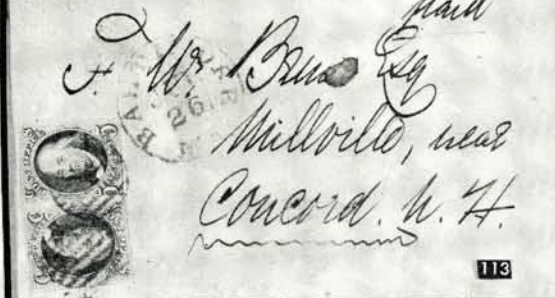 paid
F. W. Esq
Millville, near
Concord. N. H.
BAL
26
113